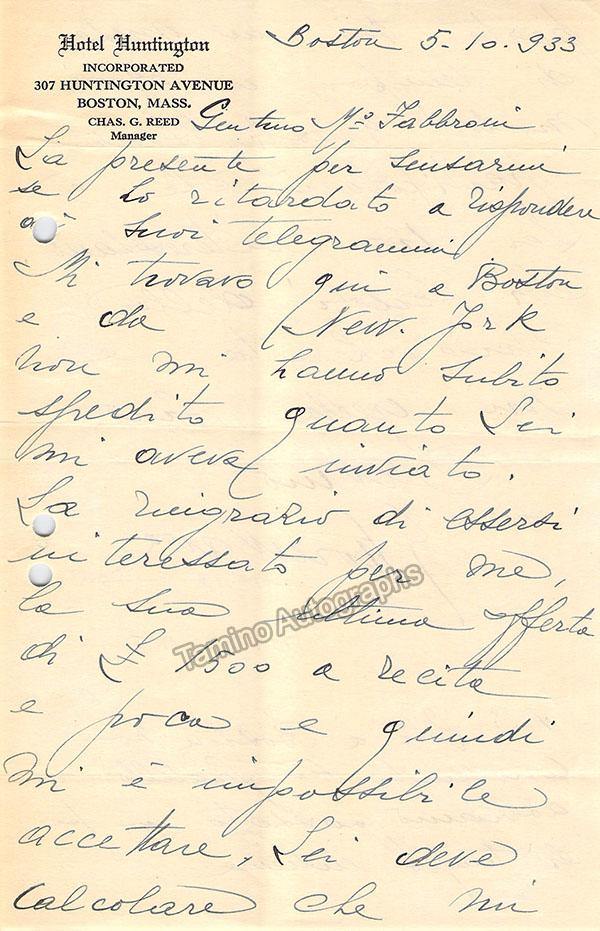 Hotel Huntington
INCORPORATED
307 HUNTINGTON AVENUE
BOSTON, MASS.
CHAS. G. REED
Manager
Boston 5-10-933
Gentmo Mº Fabbroni
La presente per scusarmi
se ho ritardato a rispondere
ai suoi telegrammi
Mi trovavo qui a Boston
e da New. York
non mi hanno subito
spedito quanto Lei
mi aveva inviato.
La ringrazio di essersi
interessato per me,
la sua ultima offerta
di £ 1500 a recita
e poca e quindi
mi è impossibile
accettare, Lei deve
calcolare che mi
Tamino Autographs